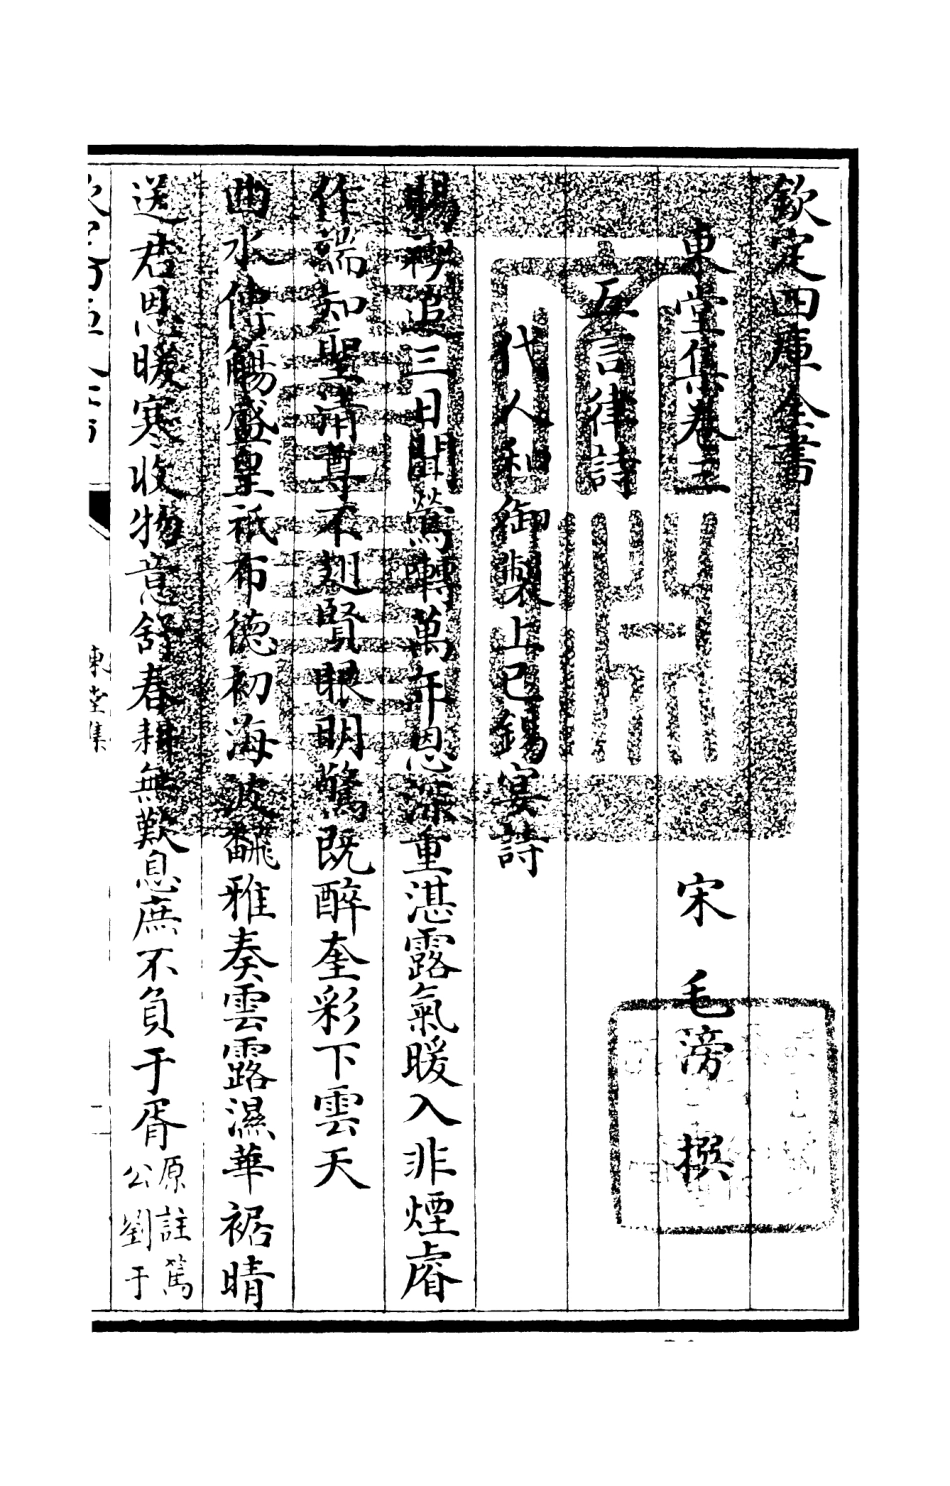 欽定四庫全書
東堂集卷三
宋 毛滂 撰
五言律詩
代人和御製上巳錫宴詩
賜禊追三日聞鶯轉萬年恩深重湛露氣暖入非煙睿
作端知聖清尊不趐賢眼明驚既醉奎彩下雲天
曲水傳觴盛皇祇布德初海波翻雅奏雲露濕華裾晴
送君恩暖寒收物意舒春耕無歎息庶不負于胥原註篤
公劉于
東堂集
一